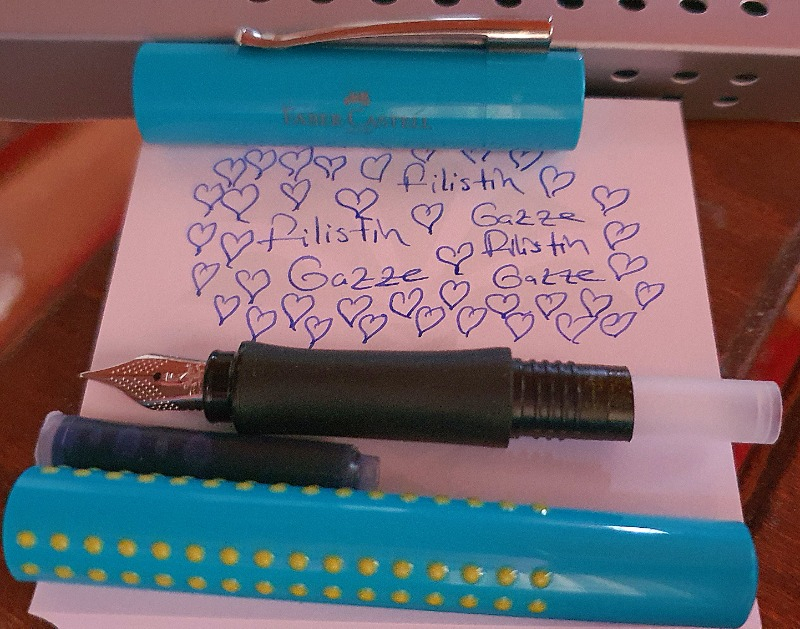 FABER-CASTELL
Filistin
Gazze
Filistin
Filistin
Gazze
Gazze